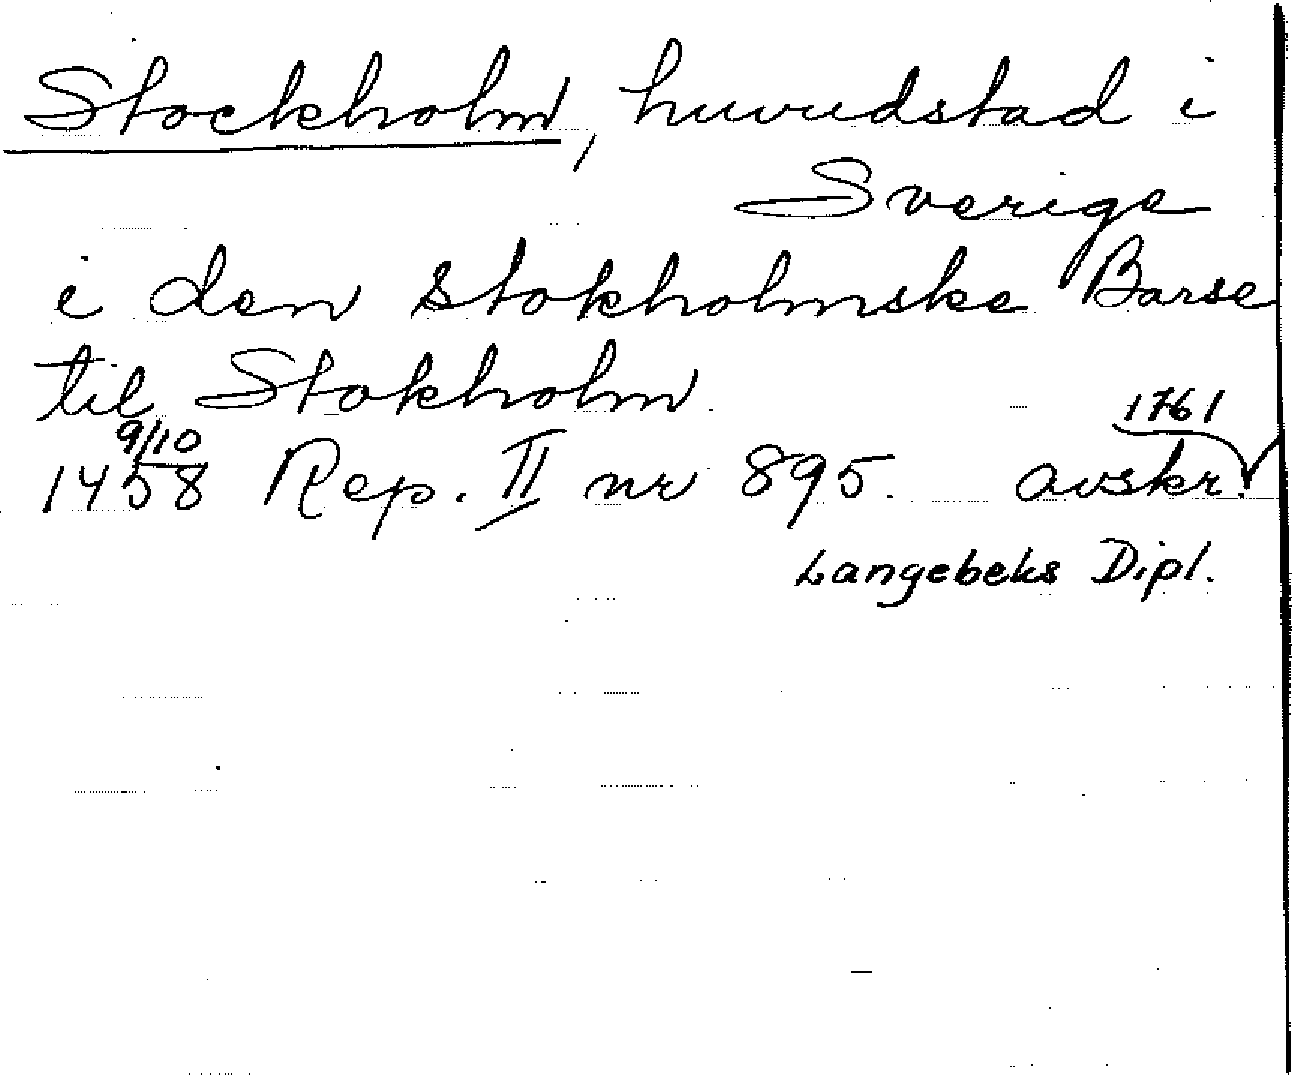 Stockholm, huvudstad i
Sverige
i den Stokholmske Barse
til Stokholm
9/10
1458 Rep. II nr 895. avskr. 1761
Langebeks Dipl.